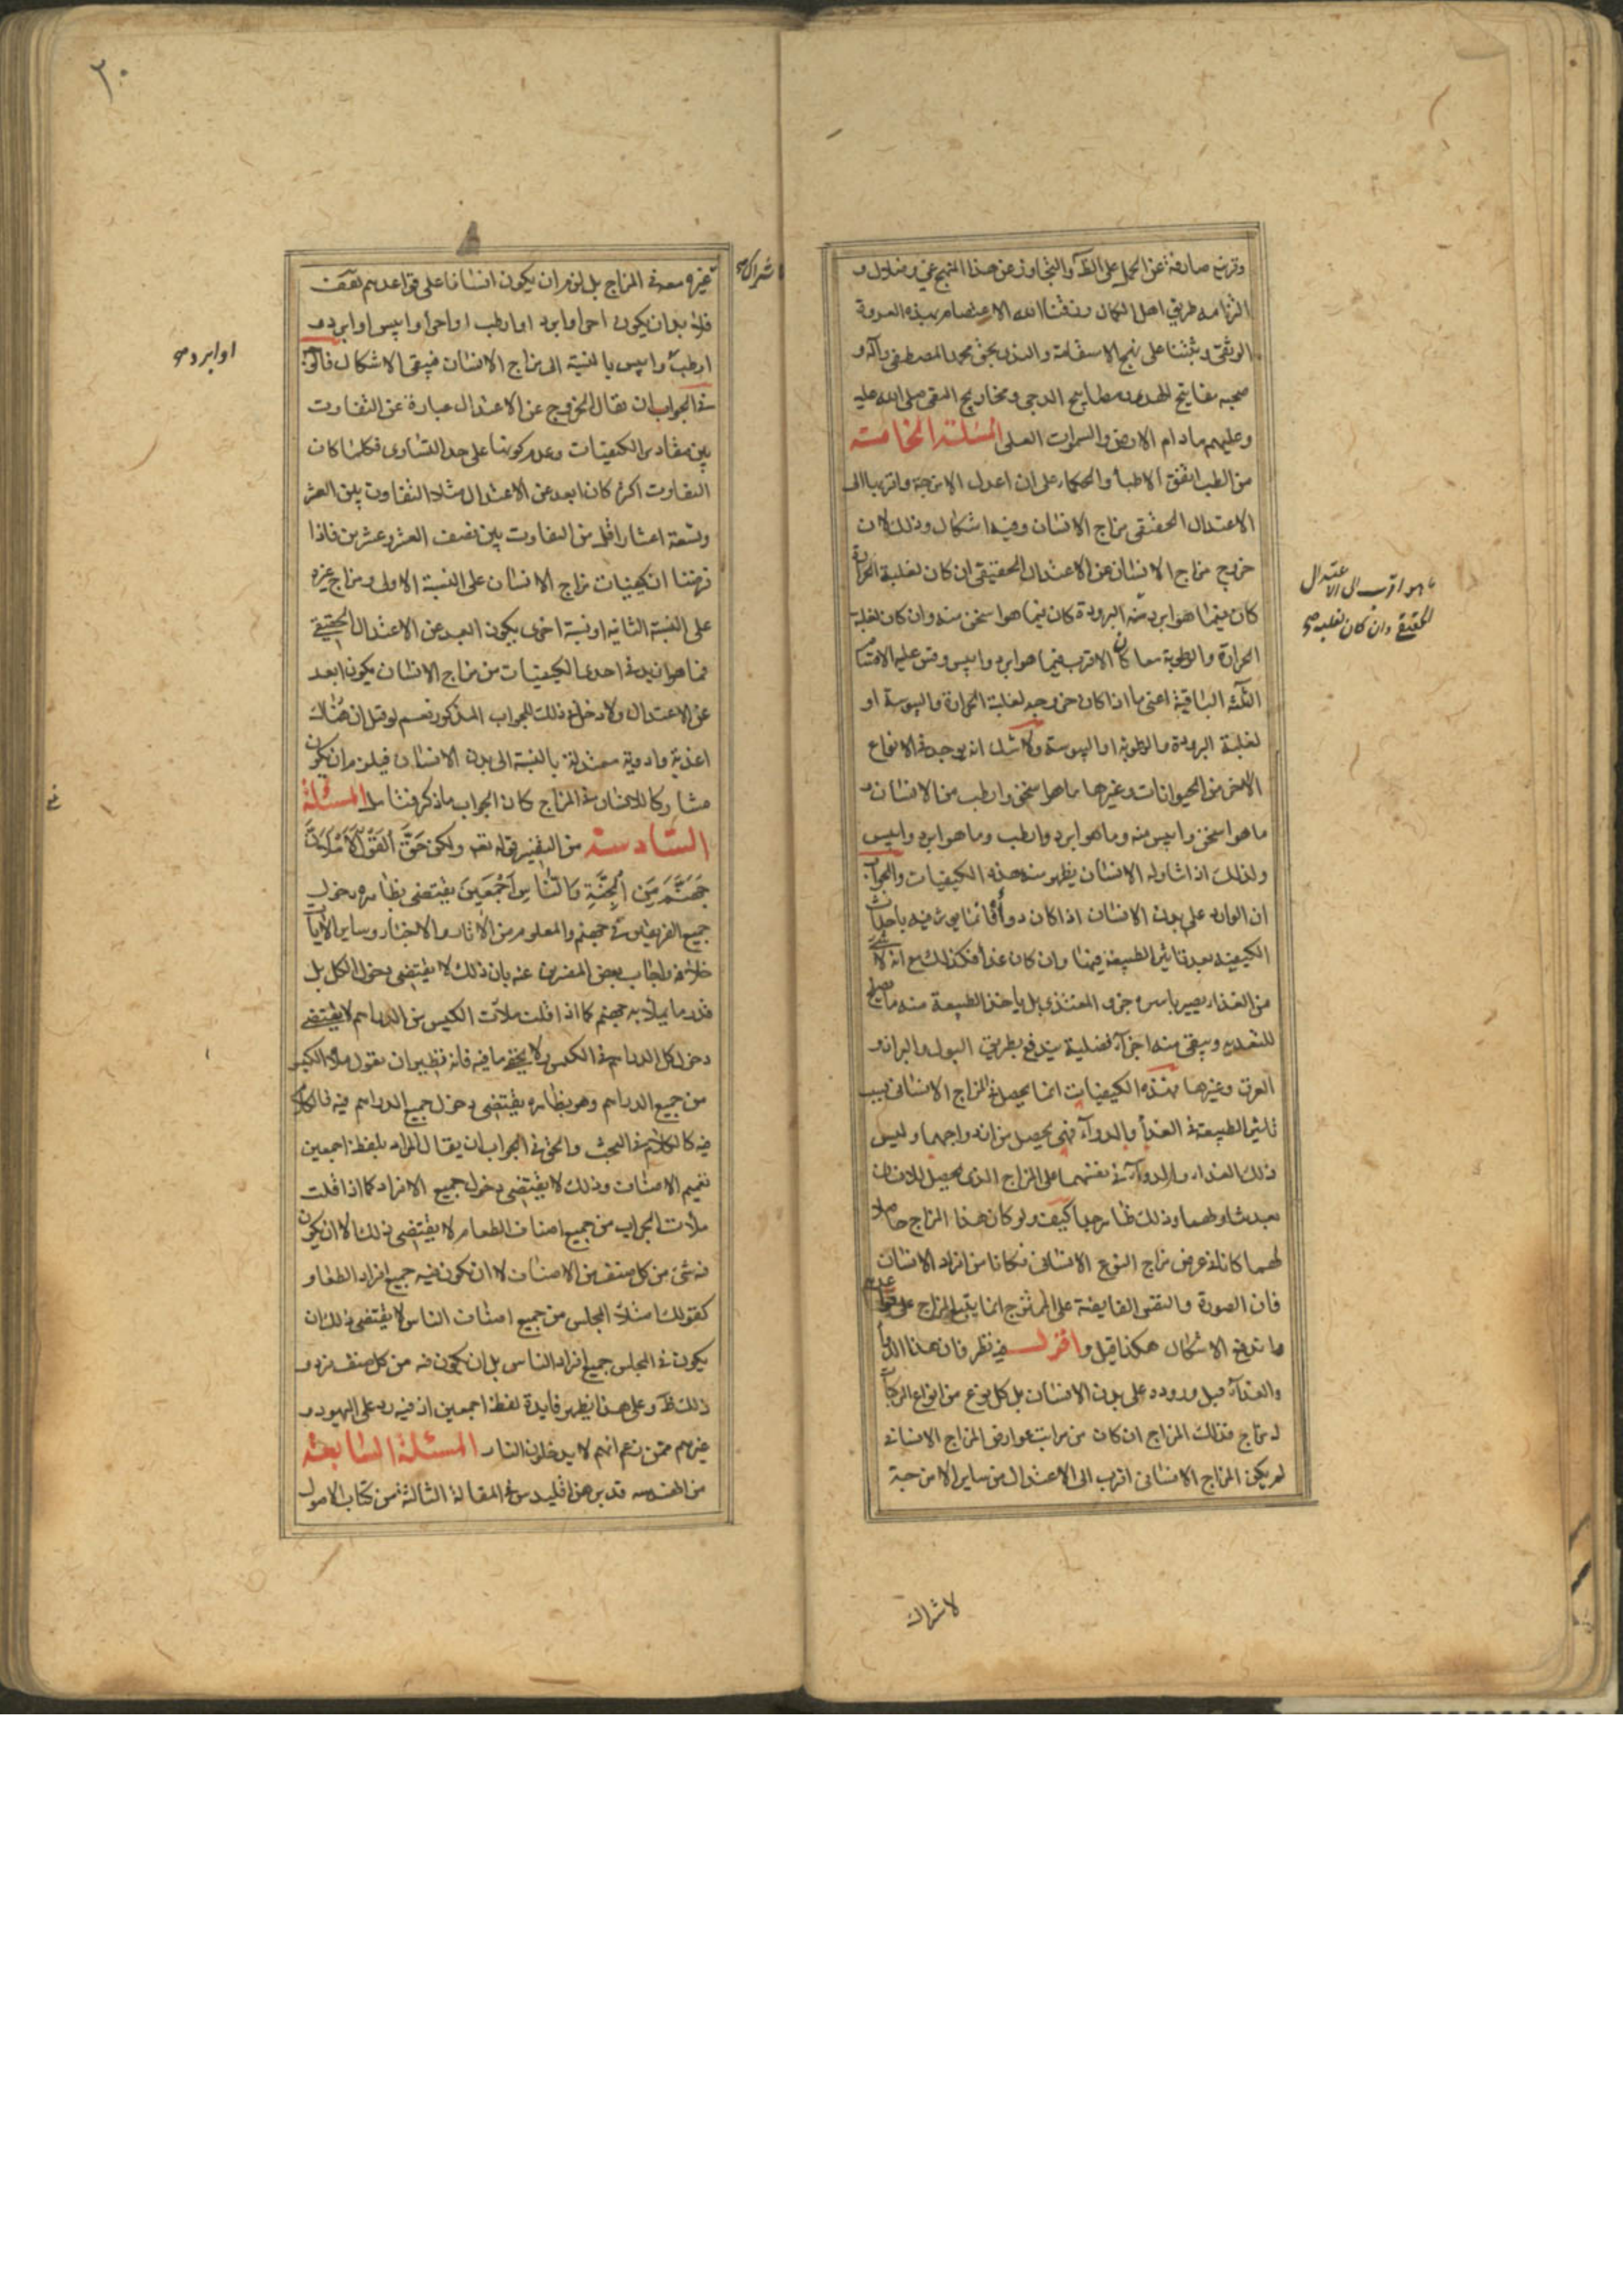 وقرينة صارفة عن الحمل على الظ والتجاوز عن هذا النهج غي وضلال و
التزامه طريق اهل الكمال وفقنا الله الاعتصام بهذه العروة
الوثقى وثبتنا على نهج الاستقامة والسداد بحق محمد المصطفى وآله و
صحبه مفاتيح الهدى ومصابيح الدجى ومخاريج التقى صلى الله عليه
وعليهم مادام الارض والسموات العلى المسئلة الخامسة
من الطب اتفق الاطباء والحكماء على ان اعدل الامزجة واقربها الى
الاعتدال الحقيقى مزاج الانسان وفيه اشكال وذلك لان
خروج مزاج الانسان عن الاعتدال الحقيقى ان كان لغلبة الحرارة
كان فيما هو ابرد منه البرودة كان فيما هو اسخن منه وان كان لغلبة
ما هو اقرب الى الاعتدال
الحقيقى وان كان لغلبة صح
الحرارة والرطوبة معا كان الاقرب فيما هو ابرد وايبس وقس عليه الاقسام
الثلثة الباقية اعنى ما اذا كان خروجه لغلبة الحرارة واليبوسة او
لغلبة البرودة والرطوبة او اليبوسة ولا شك انه يوجد فى الانواع
الاخر من الحيوانات وغيرها ما هو اسخن وارطب من الانسان و
ما هو اسخن وايبس منه وما هو ابرد وارطب وما هو ابرد وايبس
ولذلك اذا تناوله الانسان يظهر منه هذه الكيفيات والجواب
ان الوارد على بدن الانسان اذا كان دواء فانما يؤثر فيه باحداث
الكيفية بعد تاثير الطبيعة فيها وان كان غذاء فكذلك مع انه لا شئ
من الغذاء يصير باسره جزو المغتذى بل ياخذ الطبيعة منه ما يصلح
للتغذيه ويبقى منه اجزاء فضلية يندفع بطريق البول والبراز و
العرق وغيرها فهذه الكيفيات انما يحصل فى المزاج الانسانى بسبب
تاثير الطبيعة فى الغذاء والدواء فهى يحصل من ازدواجهما وليس
ذلك الغذاء والدواء فى نفسهما على المزاج الذى يحصل للانسان
بعد تناولهما وذلك ظاهر جدا كيف ولو كان هذا المزاج حاصلا
لهما كانا فى عرض مزاج النوع الانسانى فكانا من افراد الانسان
فان الصورة والنفس الفايضة على الممتزج انما يتبع المزاج على قواعدهم
فاندفع الاشكال هكذا قيل واقول فيه نظر فان هذا الدواء
والغذاء قبل وروده على بدن الانسان بل كل نوع من انواع المركبات
له مزاج فذلك المزاج ان كان من مراتب عوارض المزاج الانسانى
لم يكن المزاج الانسانى اقرب الى الاعتدال من ساير الامزجة
لاشراك
٢٠
اشراك صح
غيره معه فى المزاج بل لزم ان يكون انسانا على قواعدهم
فلابد ان يكون احر او ابرد او ارطب او احر وايبس او ابرد و
او ابرد و صح
ارطب وايبس بالنسبة الى مزاج الانسان فيبقى الاشكال فالحق
فى الجواب ان يقال الخروج عن الاعتدال عبارة عن التفاوت
بين مقادير الكيفيات وعدم كونها على حد التساوى فكلما كان
التفاوت اكثر كان ابعد عن الاعتدال مثلا التفاوت بين العشر
وتسعة اعشار اقل من التفاوت بين نصف العشر وعشرين فاذا
فرضنا ان كيفيات مزاج الانسان على النسبة الاولى ومزاج غيره
على النسبة الثانية او نسبة اخرى يكون ابعد عن الاعتدال الحقيقى
فما هو ازيد فى احدى الكيفيات من مزاج الانسان يكون ابعد
عن الاعتدال ولا دخل فى ذلك للجواب المذكور نعم لو قيل ان هناك
اغذية وادوية معتدلة بالنسبة الى بدن الانسان فيلزم ان يكون
مشاركا للانسان فى المزاج كان الجواب ما ذكر فتامل المسئلة
السادسة من التفسير قوله تعه ولكن حق القول منى لاملان
جهنم من الجنة والناس اجمعين يقتضى بظاهره دخول
جميع الفريقين فى جهنم والمعلوم من الاثار والاخبار وساير الايات
خلافه واجاب بعض المفسرين عنه بان ذلك لا يقتضى دخول الكل بل
قدر ما يملأ به جهنم كما اذا قلت ملأت الكيس من الدراهم لا يقتضى
دخول كل الدراهم فى الكيس ولا يخفى ما فيه فانه نظير ان تقول ملأت الكيس
من جميع الدراهم وهو بظاهره يقتضى دخول جميع الدراهم فيه فالكلام
فيه كالكلام فى المبحث والحق فى الجواب ان يقال المراد بلفظ اجمعين
تعميم الاصناف وذلك لا يقتضى دخول جميع الافراد كما اذا قلت
ملأت الجراب من جميع اصناف الطعام لا يقتضى ذلك الا ان يكون
فيه شئ من كل صنف من الاصناف لا ان تكون فيه جميع افراد الطعام و
كقولك امتلأ المجلس من جميع اصناف الناس لا يقتضى ذلك ان
يكون فى المجلس جميع افراد الناس بل ان يكون فيه من كل صنف فرد و
ذلك ظ وعلى هذا يظهر فايدة لفظ اجمعين اذ فيه رد على اليهود و
غيرهم ممن زعم انهم لا يدخلون النار المسئلة السابعة
من الهندسه قد برهن اقليدس فى المقالة الثالثة من كتاب الاصول